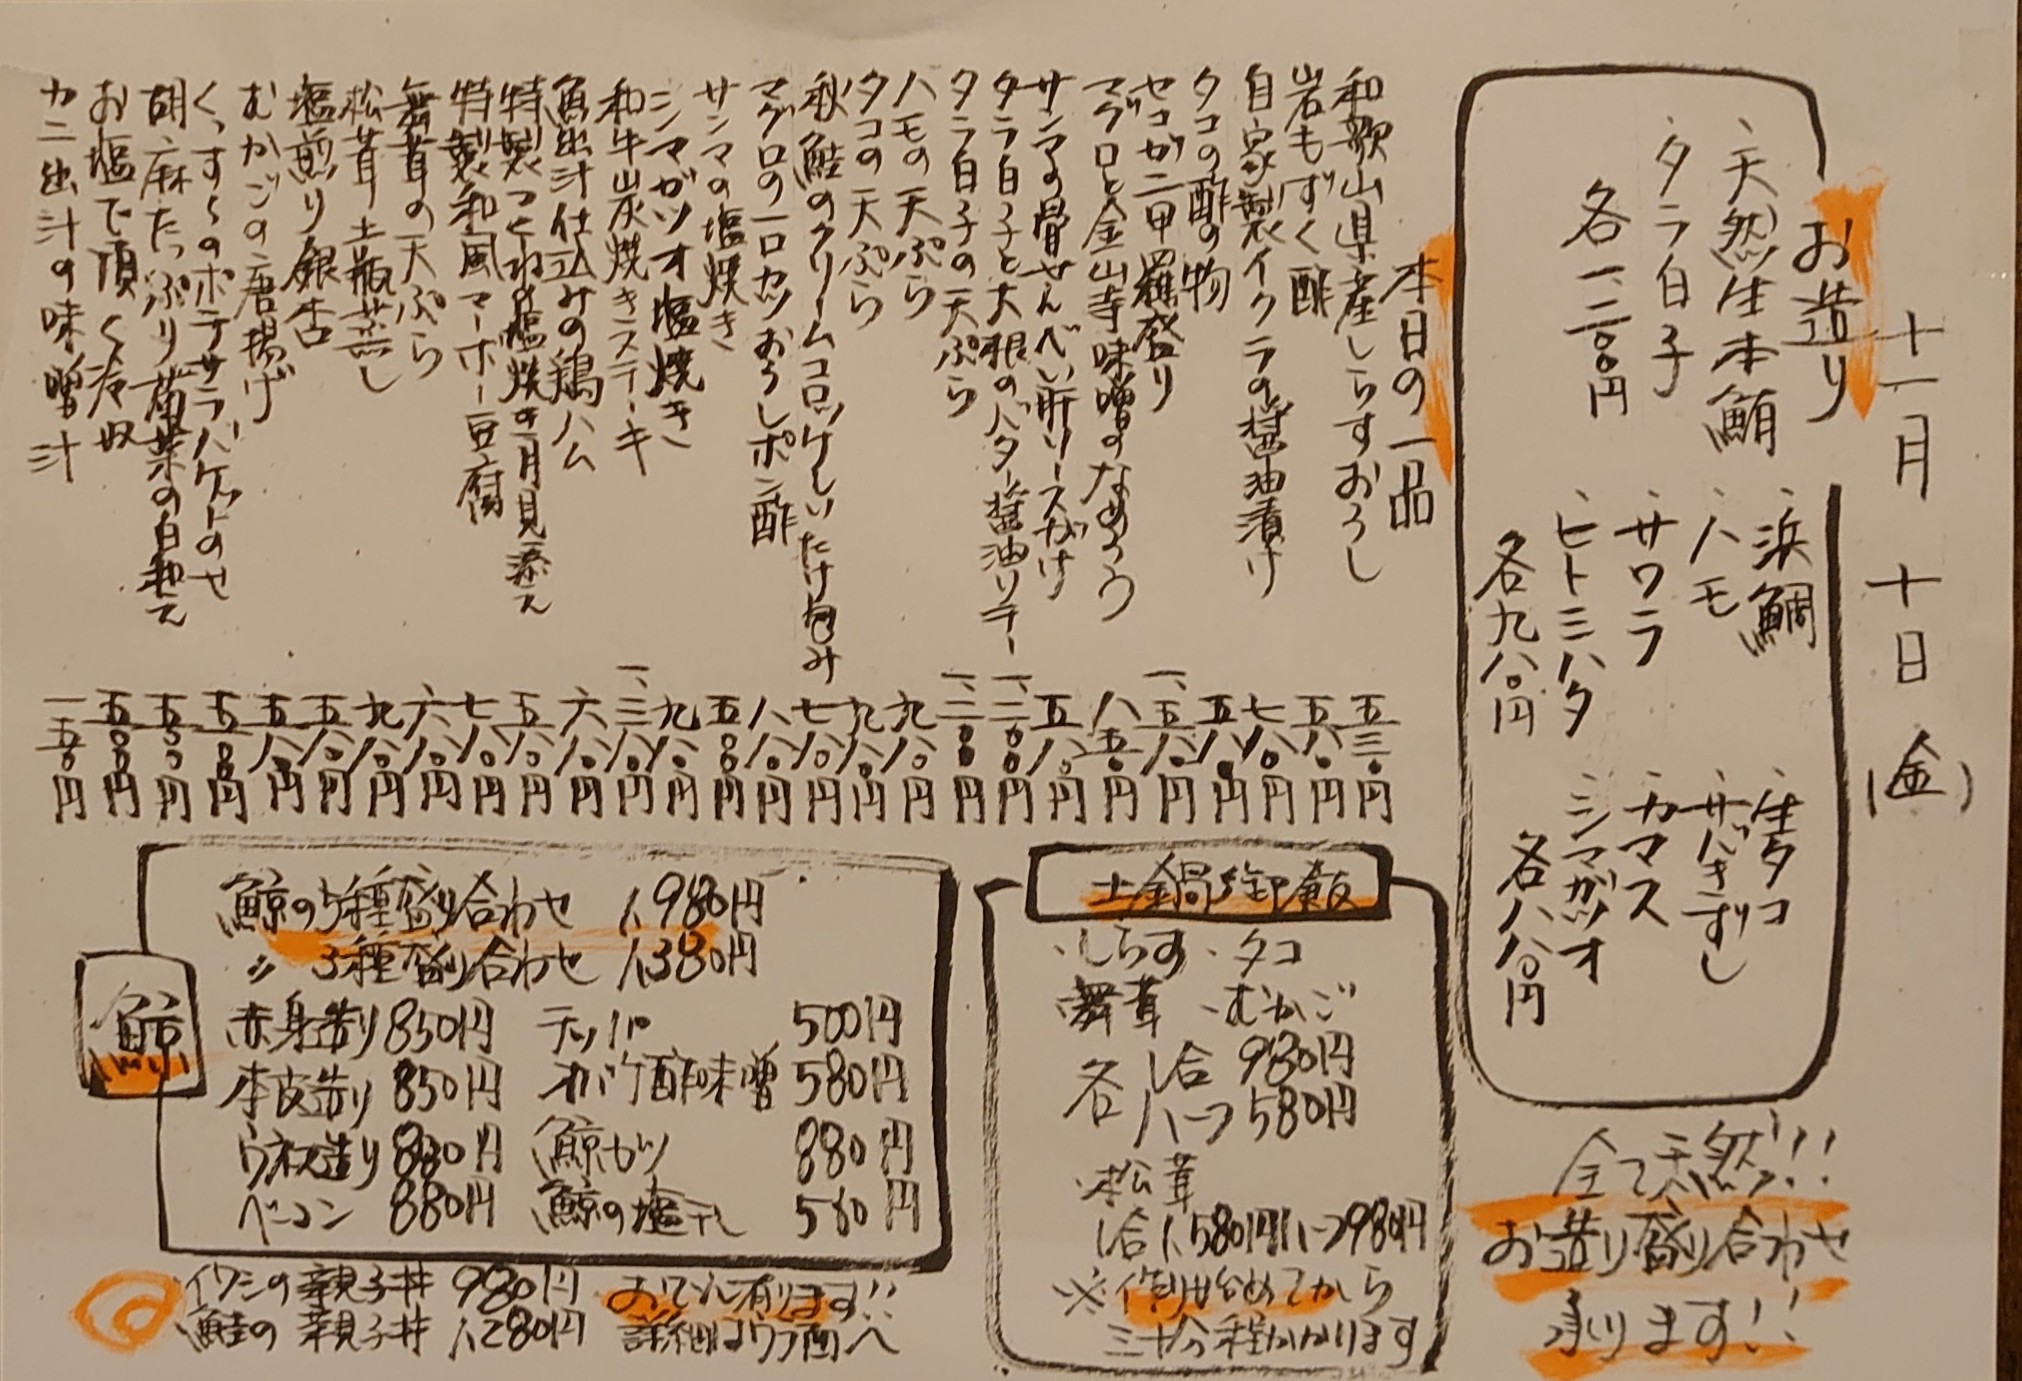 十一月十日(金)
お造り
・天然生本鮪
・タラ白子
各一、二〇〇円
・浜鯛
・ハモ
・サワラ
・ヒトミハタ
各九八〇円
・生タコ
・サバきずし
・カマス
・シマガツオ
各八八〇円
全て天然!!
お造り盛り合わせ
承ります!!
本日の一品
和歌山県産しらすおろし 五三〇円
岩もずく酢 五八〇円
自家製イクラの醤油漬け 七八〇円
タコの酢の物 五八〇円
セコガニ甲羅盛り 一、五八〇円
マグロと金山寺味噌のなめろう 八五〇円
サンマの骨せんべい肝ソースがけ 五八〇円
タラ白子と大根のバター醤油ソテー 一、二〇〇円
タラ白子の天ぷら 一、二〇〇円
ハモの天ぷら 九八〇円
タコの天ぷら 九八〇円
秋鮭のクリームコロッケしいたけ包み 七八〇円
マグロの一口カツおろしポン酢 八八〇円
サンマの塩焼き 五〇〇円
シマガツオ塩焼き 九八〇円
和牛炭焼きステーキ 一、三八〇円
魚出汁仕込みの鶏ハム 六八〇円
特製つくね塩焼き月見添え 五八〇円
特製和風マーボー豆腐 七八〇円
舞茸の天ぷら 六八〇円
松茸土瓶蒸し 九八〇円
塩煎り銀杏 五八〇円
むかごの唐揚げ 五八〇円
くっすんのポテサラバケットのせ 五五〇円
胡麻たっぷり菊菜の白和え 五五〇円
お塩で頂く冷奴 五〇〇円
カニ出汁の味噌汁 一五〇円
土鍋御飯
・しらす・タコ
・舞茸・むかご
各 1合 980円
各 ハーフ 580円
・松茸
1合1,580円ハーフ980円
※作り始めてから
三十分程かかります
鯨
鯨の5種盛り合わせ 1,980円
〃 3種盛り合わせ 1,380円
赤身造り 850円 テッパ 500円
本皮造り 850円 オバケ酢味噌 580円
ウネス造り 880円 鯨カツ 880円
ベーコン 880円 鯨の塩干し 580円
イワシの親子丼 980円
鮭の親子丼 1,280円
おでん有ります!!
詳細はウラ面へ